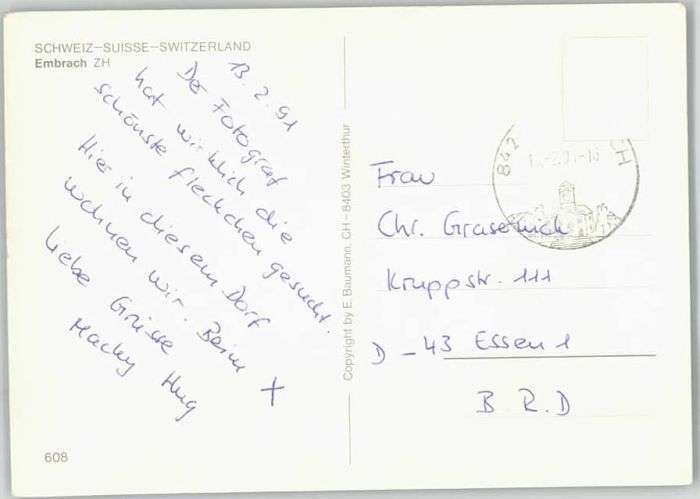 SCHWEIZ–SUISSE–SWITZERLAND
Embrach ZH
13.2.91
Der Fotograf
hat wirklich die
schönste fleckchen gesucht.
Hier in diesem Dorf
wohnen wir. Beim +
Liebe Grüsse
Macky Hug
608
Copyright by E. Baumann, CH – 8403 Winterthur
842
CH
Frau
Chr.
Kruppstr. 111
D – 43 Essen 1
B.R.D